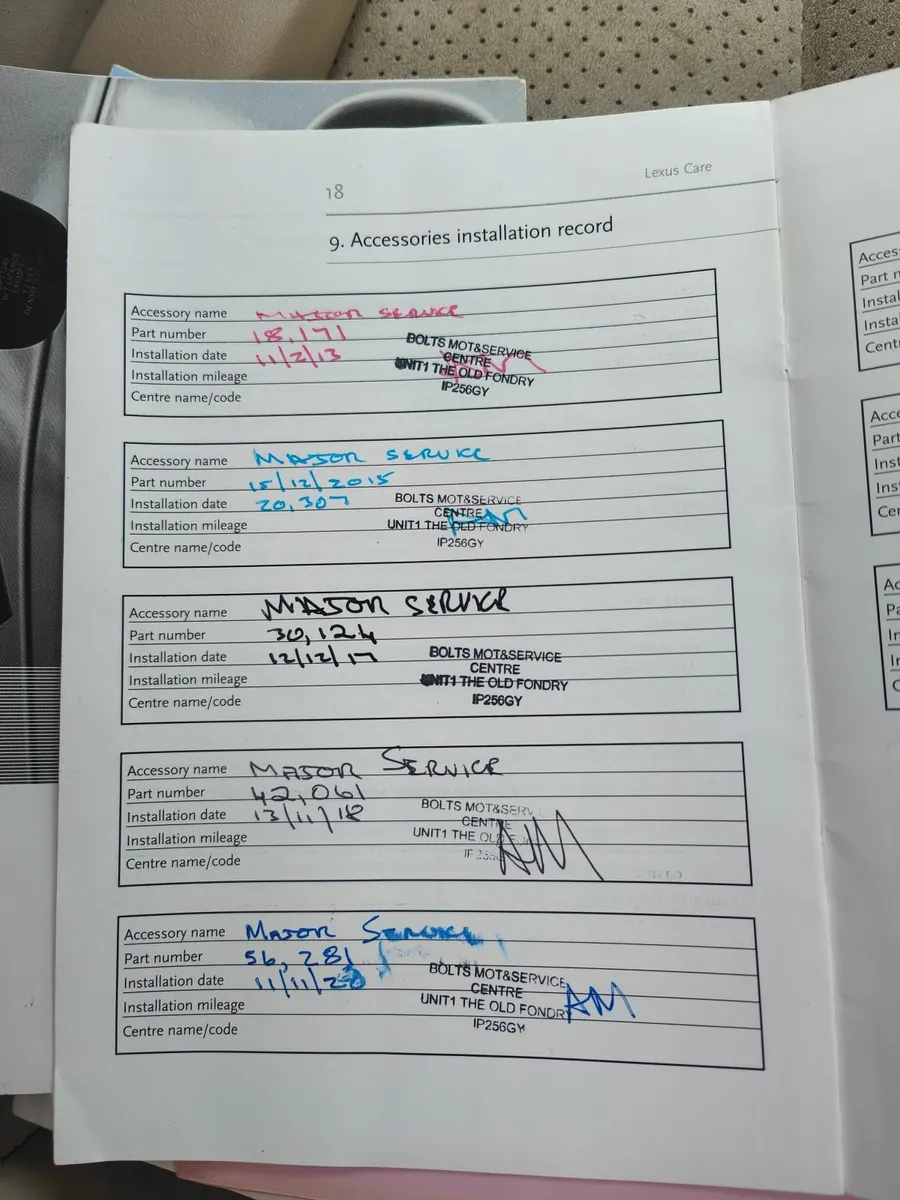 18
Lexus Care
9. Accessories installation record
Accessory name MAJOR SERVICE
Part number 18,171
Installation date 11/2/13
Installation mileage
Centre name/code
BOLTS MOT&SERVICE
CENTRE
UNIT1 THE OLD FONDRY
IP256GY
Accessory name MAJOR SERVICE
Part number 15/12/2015
Installation date 20,307
Installation mileage
Centre name/code
BOLTS MOT&SERVICE
CENTRE
UNIT1 THE OLD FONDRY
IP256GY
AM
Accessory name MAJOR SERVICE
Part number 30,124
Installation date 12/12/17
Installation mileage
Centre name/code
BOLTS MOT&SERVICE
CENTRE
UNIT1 THE OLD FONDRY
IP256GY
Accessory name MAJOR SERVICE
Part number 42,061
Installation date 13/11/18
Installation mileage
Centre name/code
BOLTS MOT&SERV
CENTRE
UNIT1 THE OLD
AM
Accessory name MAJOR SERVICE
Part number 56,281
Installation date 11/11/20
Installation mileage
Centre name/code
BOLTS MOT&SERVICE
CENTRE
UNIT1 THE OLD FONDRY
IP256GY
AM